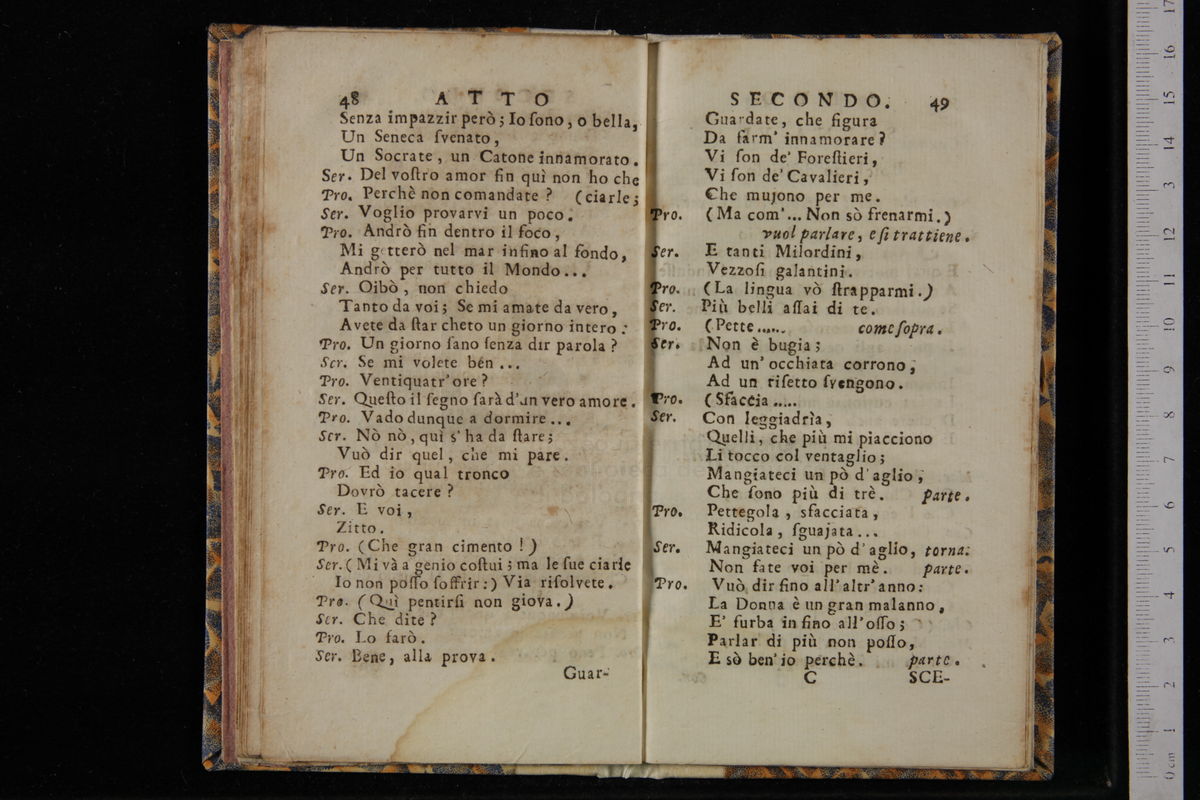 48 ATTO
Senza impazzir però; Io ſono, o bella,
Un Seneca ſvenato,
Un Socrate, un Catone innamorato.
Ser. Del voſtro amor fin quì non ho che
Pro. Perchè non comandate? (ciarle;
Ser. Voglio provarvi un poco.
Pro. Andrò fin dentro il foco,
Mi getterò nel mar infino al fondo,
Andrò per tutto il Mondo...
Ser. Oibò, non chiedo
Tanto da voi; Se mi amate da vero,
Avete da ſtar cheto un giorno intero:
Pro. Un giorno ſano ſenza dir parola?
Ser. Se mi volete bén...
Pro. Ventiquatr'ore?
Ser. Queſto il ſegno ſarà d'un vero amore.
Pro. Vado dunque a dormire...
Ser. Nò nò, quì s'ha da ſtare;
Vuò dir quel, che mi pare.
Pro. Ed io qual tronco
Dovrò tacere?
Ser. E voi,
Zitto.
Pro. (Che gran cimento!)
Ser. (Mi và a genio coſtui; ma le ſue ciarle
Io non poſſo ſoffrir:) Via riſolvete.
Pro. (Quì pentirſi non giova.)
Ser. Che dite?
Pro. Lo farò.
Ser. Bene, alla prova.
Guar-
SECONDO. 49
Guardate, che figura
Da farm' innamorare?
Vi ſon de' Foreſtieri,
Vi ſon de' Cavalieri,
Che mujono per me.
Pro. (Ma com'... Non sò frenarmi.)
vuol parlare, e ſi trattiene.
Ser. E tanti Milordini,
Vezzoſi galantini.
Pro. (La lingua vò ſtrapparmi.)
Ser. Più belli aſſai di te.
Pro. (Pette..... come ſopra.
Ser. Non è bugia;
Ad un' occhiata corrono,
Ad un riſetto ſvengono.
Pro. (Sfaccia.....
Ser. Con leggiadrìa,
Quelli, che più mi piacciono
Li tocco col ventaglio;
Mangiateci un pò d'aglio,
Che ſono più di trè. parte.
Pro. Pettegola, sfacciata,
Ridicola, ſguajata...
Ser. Mangiateci un pò d'aglio, torna.
Non fate voi per mè. parte.
Pro. Vuò dir fino all'altr'anno:
La Donna è un gran malanno,
E' furba in fino all'oſſo;
Parlar di più non poſſo,
E sò ben'io perchè. parte.
C SCE-
0 cm 1 2 3 4 5 6 7 8 9 10 11 12 3 14 15 16 17